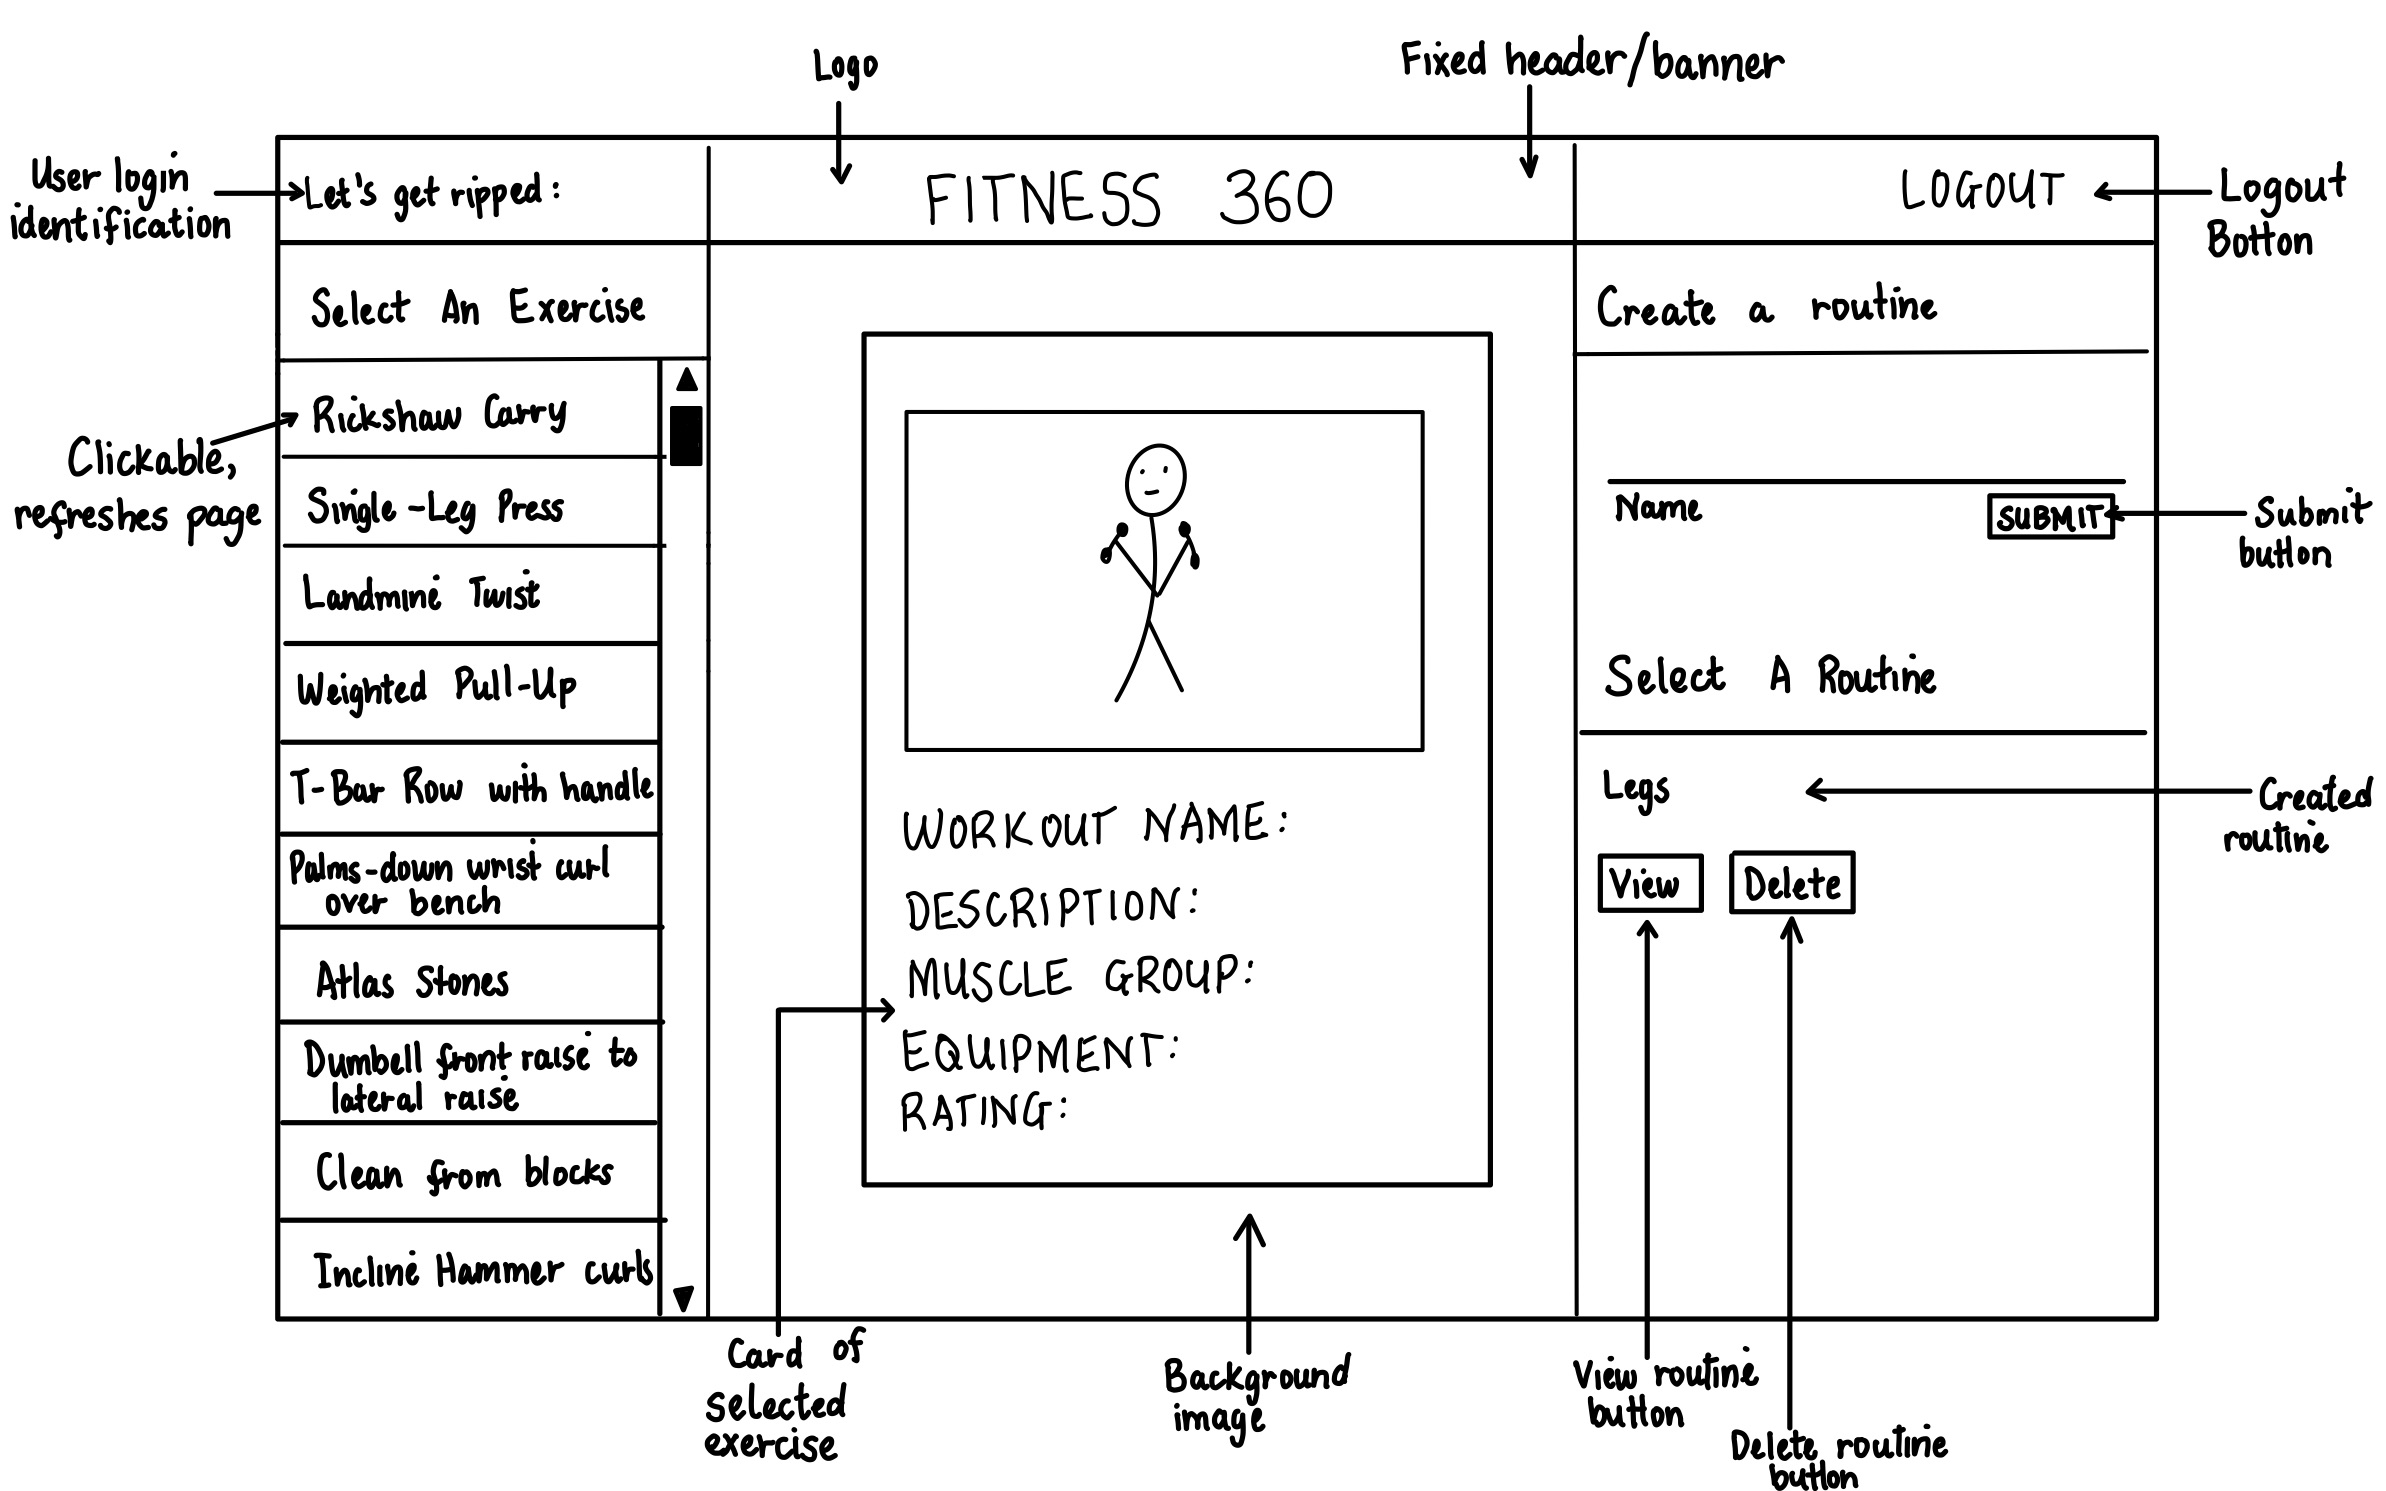 Logo
Fixed header/banner
User login
identification
Let's get ripped:
FITNESS 360
LOGOUT
Logout
Button
Select An Exercise
Create a routine
Clickable,
refreshes page
Rickshaw Carry
Single-Leg Press
Landmine Twist
Weighted Pull-Up
T-Bar Row with handle
Palms-down wrist curl
over bench
Atlas Stones
Dumbell front raise to
lateral raise
Clean from blocks
Incline Hammer curls
WORKOUT NAME:
DESCRIPTION:
MUSCLE GROUP:
EQUIPMENT:
RATING:
Name
SUBMIT
Submit
button
Select A Routine
Legs
Created
routine
View
Delete
Card of
selected
exercise
Background
image
View routine
button
Delete routine
button